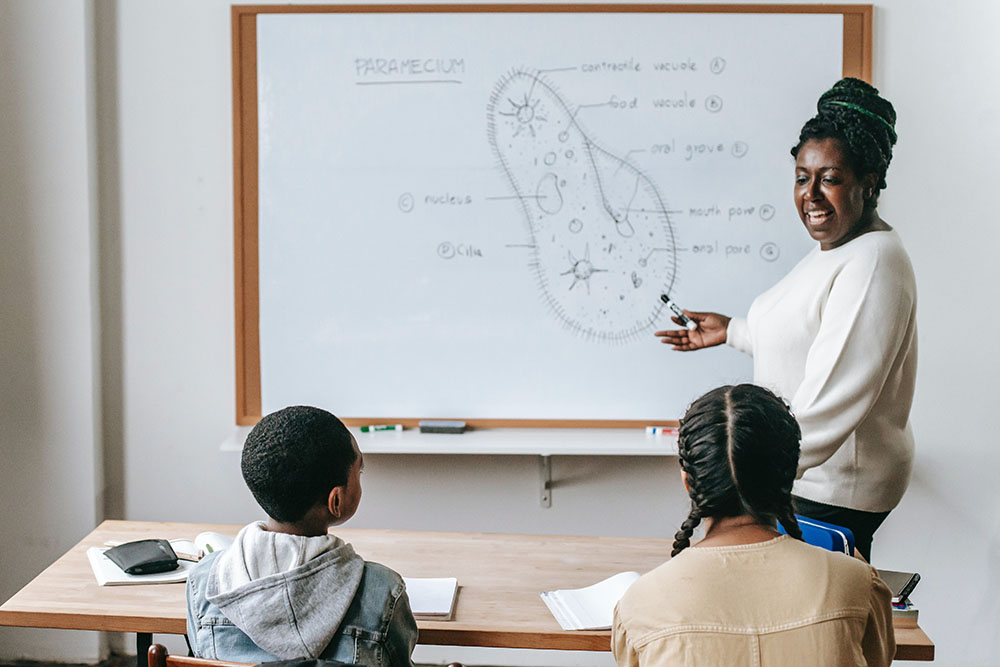 PARAMECIUM
contractile vacuole A
food vacuole B
oral grove E
C nucleus
mouth pore F
D Cilia
anal pore G